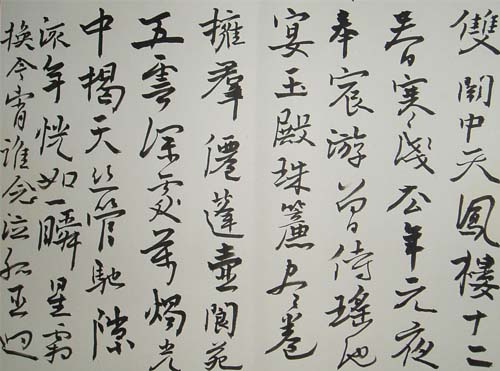 雙闕中天鳳樓十二
春寒淺去年元夜
奉宸游曾侍瑤池
宴玉殿珠簾盡卷
擁羣僊蓬壺閬苑
五雲深處萬燭光
中揭天絲管馳隙
流年恍如一瞬星霜
換今宵誰念泣孤臣回